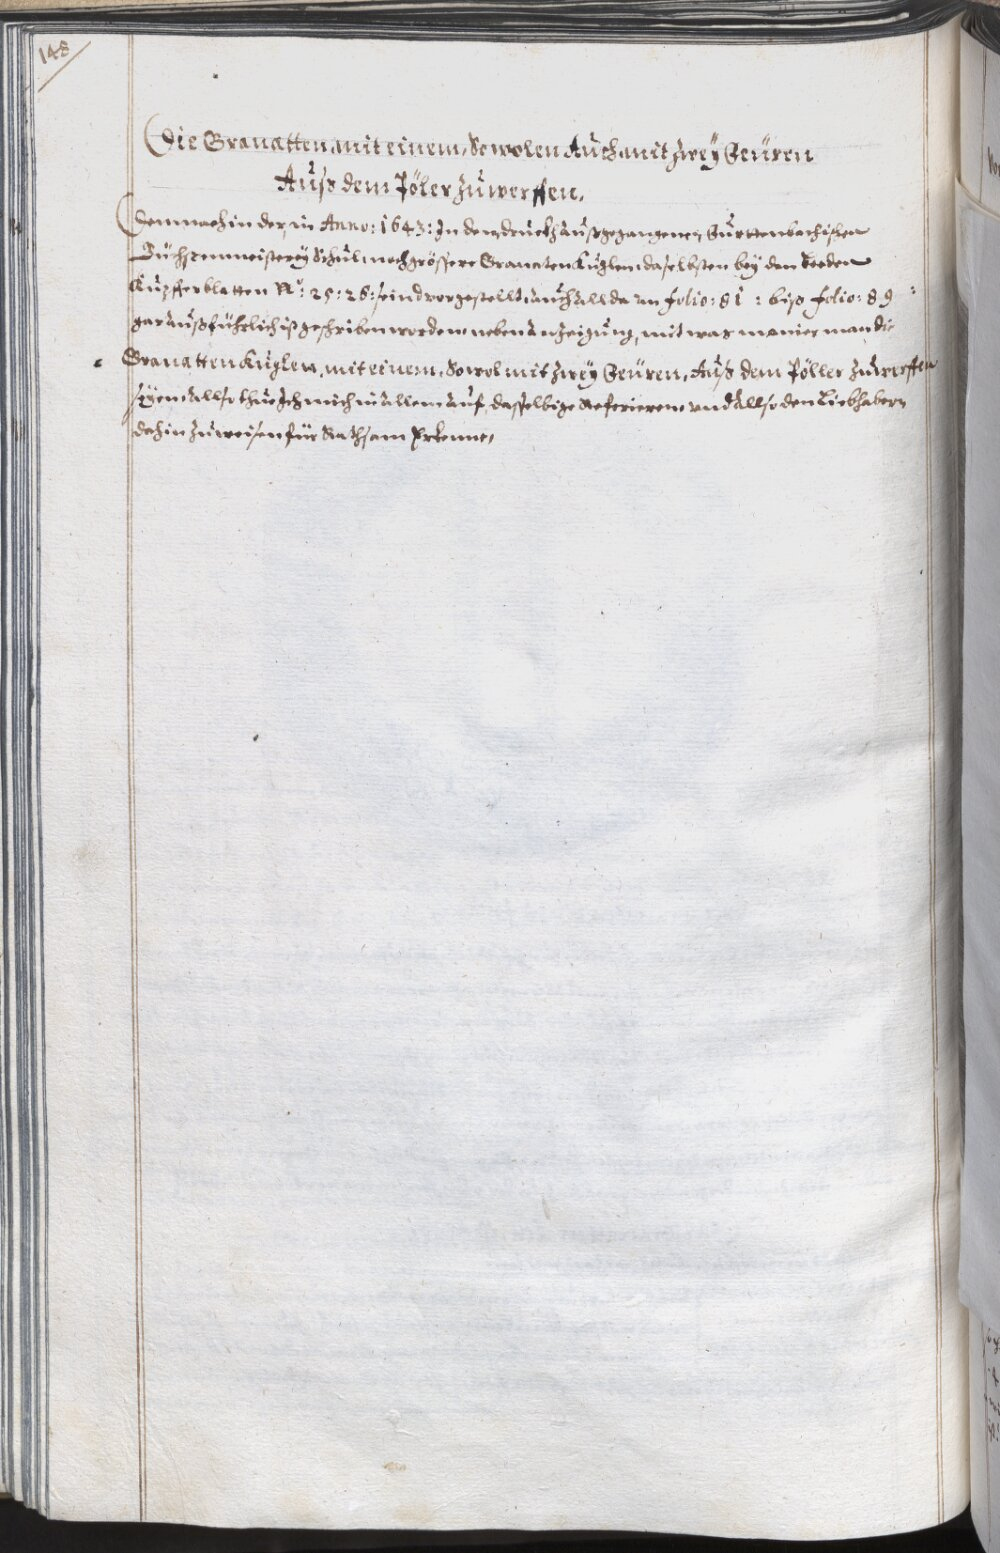 148
Die Granatten, mit einem, Sowolen Auch mit zweÿ Feüren
Auß dem Pöler zu werffen.
Demnach in der, in Anno: 1643: In den druckh außgegangenen, Furttenbachischen
Büchsenmeistereÿ Schul noch grössere Granaten Kuglen daselbsten beÿ den beeden
Kupfferblatten No: 25: 26: seind vorgestellt, auch allda an folio: 81 : biß folio: 89 :
gar außführlich ist geschriben worden, neben anzeigung, mit was manier man die
Granatten Kuglen, mit einem, Sowol mit zweÿ Feüren, Auß dem Pöller zu werffen
also thue Ich mich in allem auf dasselbige Referieren, und also den Liebhabern,
dahin zu weisen für Rathsam Erkenne,